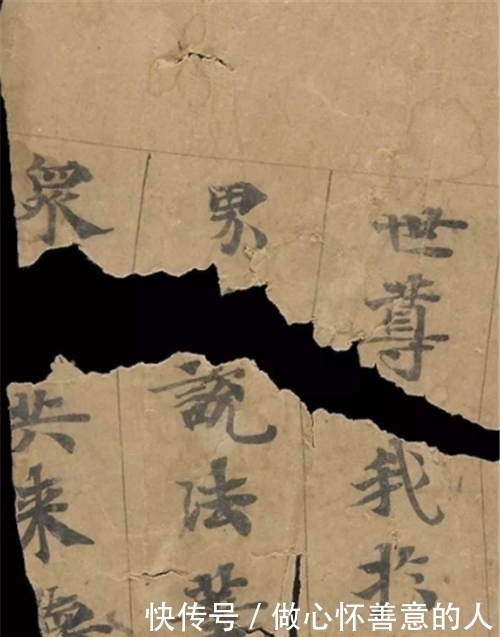 世尊我扵
男說法
衆共来
快传号 / 做心怀善意的人